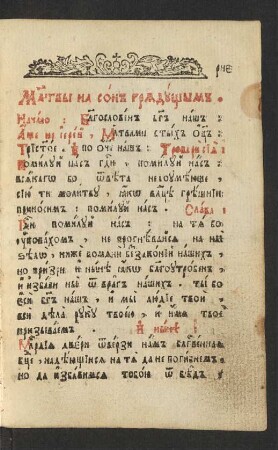 рч҃е
Мл҃твы на сонъ грѧдꙋщымъ.
Начало: Бл҃гословенъ бг҃ъ нашъ:
Аще і҆ерей, Мл҃твами ст҃ыхъ ѻц҃ъ:
Трист҃ое. И по Оч҃е нашъ: Тропарй:
Помилꙋй насъ гд҃и, помилꙋй насъ:
всѧкагѡ бо ѿвѣта недоꙋмѣюще,
сїю ти молитвꙋ, ꙗкѡ влⷣцѣ грѣшнїи
приносимъ: помилꙋй насъ. Слава:
Гд҃и помилꙋй насъ: на тѧ бо
ᲂуповахомъ, не прогнѣвайсѧ на ны
ѕѣлѡ, ниже помѧни беззаконїй нашихъ,
но призри и нынѣ ꙗкѡ благоꙋтробенъ,
и избави ны ѿ врагъ нашихъ. ты бо
еси бг҃ъ нашъ, и мы людїе твои,
вси дѣла рꙋкꙋ твоею, и имѧ твое
призываемъ. И нынѣ:
Милосердїѧ двери ѿверзи намъ благⷭ҇венаѧ
бц҃е, надѣющїисѧ на тѧ да не погибнемъ,
но да избавимсѧ тобою ѿ бѣдъ